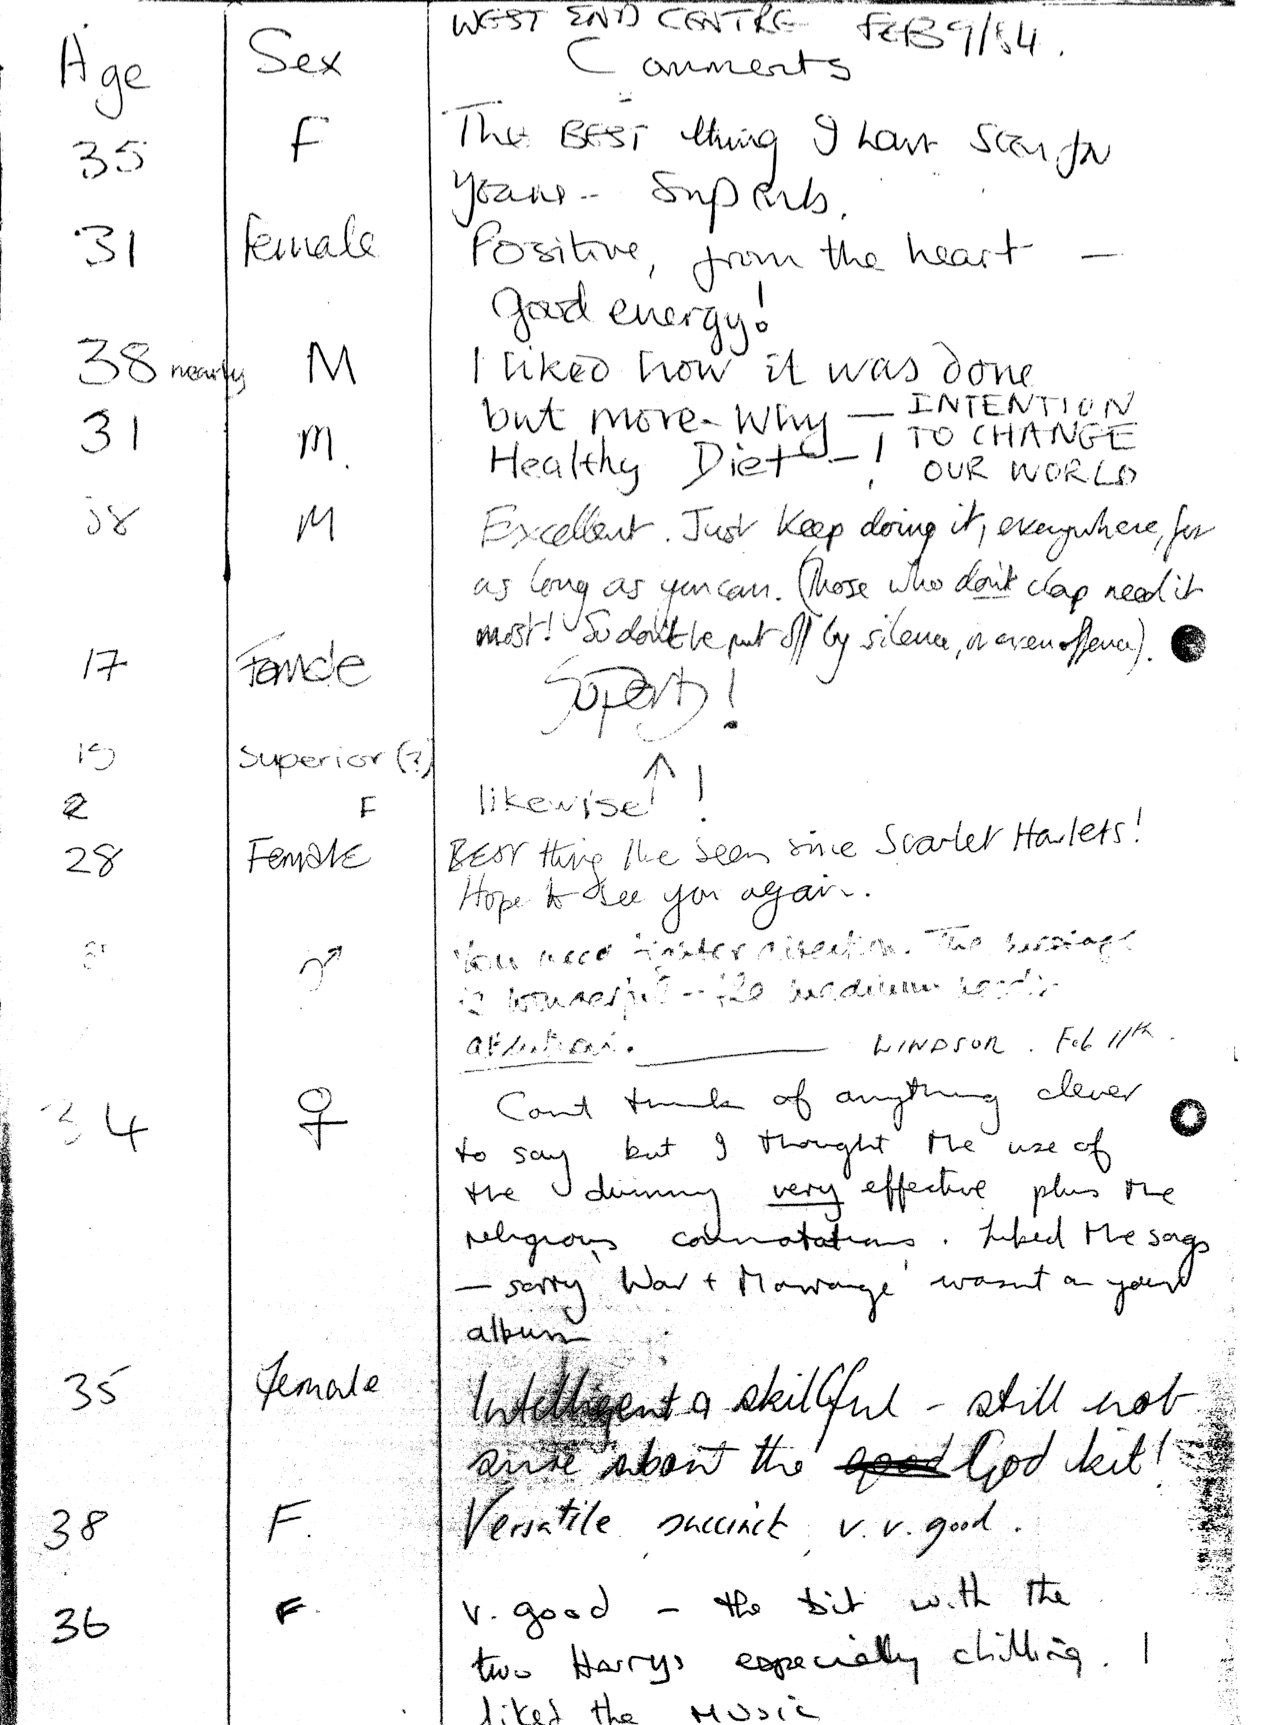 WEST END CENTRE FEB 9/84.
Age Sex Comments
35 F The BEST thing I have seen for
years - Superb.
31 Female Positive, from the heart —
good energy!
38 nearly M I liked how it was done
but more - Why — INTENTION
31 m. Healthy Diet - ! TO CHANGE
OUR WORLD
38 M Excellent. Just keep doing it, everywhere, for
as long as you can. (Those who don't clap need it
most! So don't be put off by silence, or even offence).
17 Female Superb!
19 Superior (?)
2 F likewise! !
28 Female BEST thing I've seen since Scarlet Harlets!
Hope to see you again.
3 ♂ You need tighter direction. The message
is wonderful - the medium needs
attention. WINDSOR. Feb 11th.
34 ♀ Cant think of anything clever
to say but I thought the use of
the dummy very effective plus the
religious connotations. Liked the songs
— sorry 'War + Marriage' wasnt on your
album
35 female Intelligent & skillful - still not
sure about the God bit!
38 F. Versatile, succinct, v.v. good.
36 F. v. good - the bit with the
two Harrys especially chilling. I
liked the music